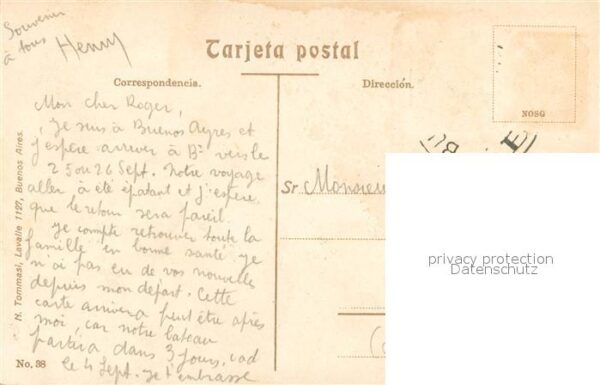 Souvenir
à tous
Henry
Tarjeta postal
Correspondencia.
Dirección.
NOSG
Mon cher Roger,
Je suis à Buenos Ayres et
j'espère arriver à Bx vers le
25 ou 26 Sept. Notre voyage
aller à été épatant et j'espère
que le retour sera pareil.
Je compte retrouver toute la
famille en bonne santé. Je
n'ai pas eu de vos nouvelles
depuis mon départ. Cette
carte arrivera peut être après
moi, car notre bateau
partira dans 3 jours, cad
le 4 Sept. Je t'embrasse
Sr Monsieur
H. Tommasi, Lavalle 1127, Buenos Aires.
No. 38
privacy protection
Datenschutz